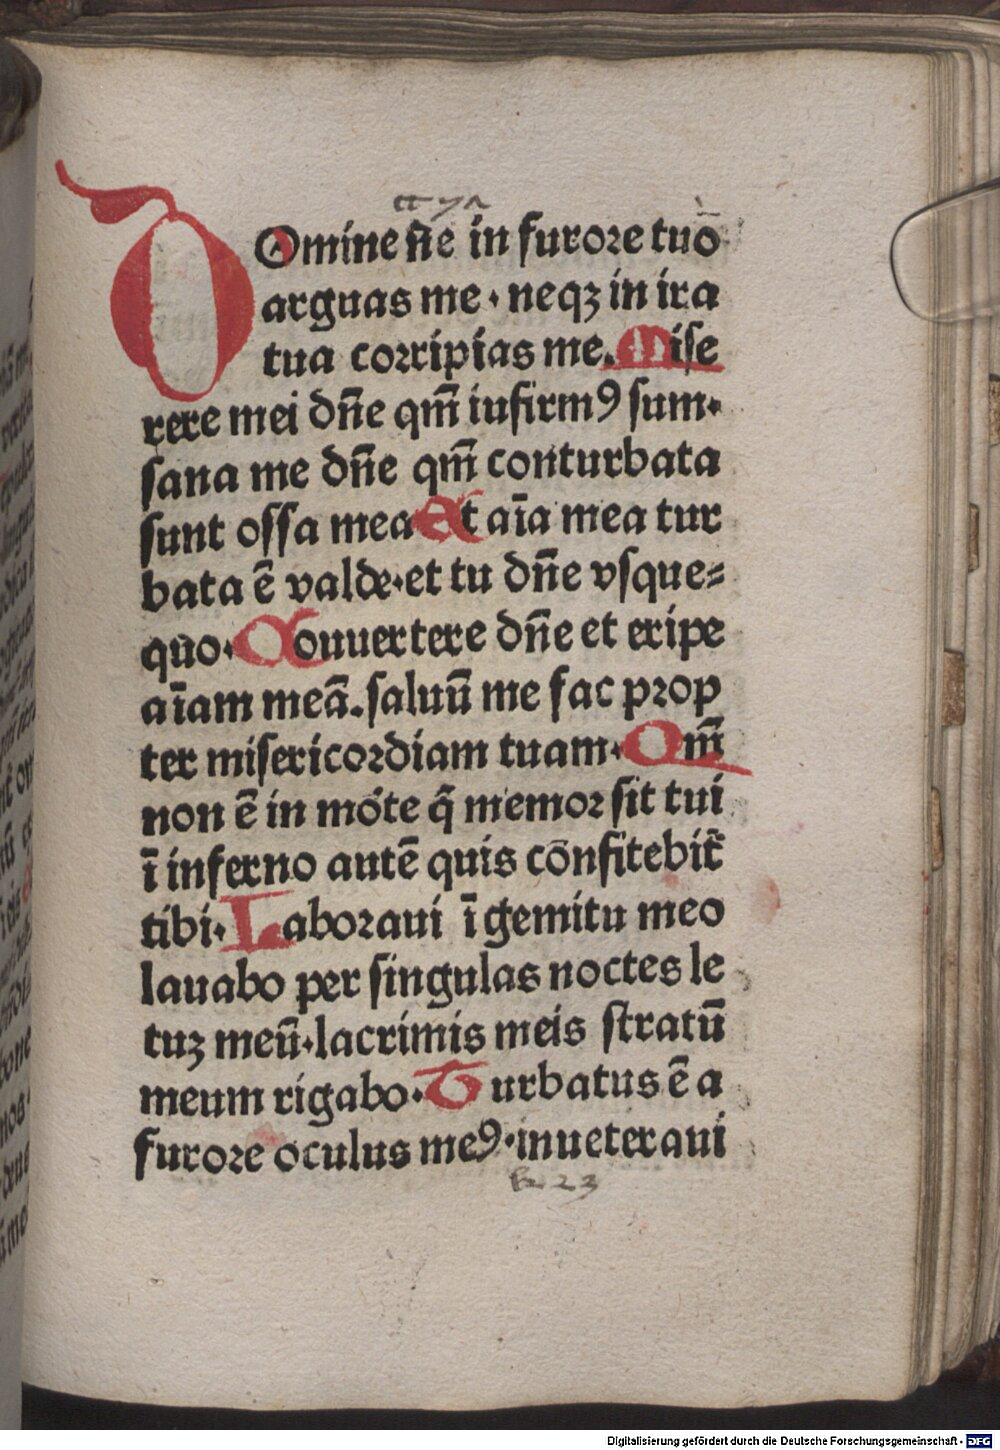 DOmine ne in furore tuo
arguas me · neqꝫ in ira
tua corripias me. Mise
rere mei dn̄e qm̄ iufirmꝰ sum·
sana me dn̄e qm̄ conturbata
sunt ossa mea Et aīa mea tur
bata ē valde· et tu dn̄e vsque⸗
quo· Conuertere dn̄e et eripe
aīam meā. saluū me fac prop
ter misericordiam tuam· Qm̄
non ē in móte q̄ memor sit tui
ī inferno autē quis cōnfitebit᷑
tibi· Laboraui ī gemitu meo
lauabo per singulas noctes le
tuꝫ meū· lacrimis meis stratū
meum rigabo· Turbatus ē a
furore oculus meꝰ· inueteraui
Digitalisierung gefördert durch die Deutsche Forschungsgemeinschaft - DFG